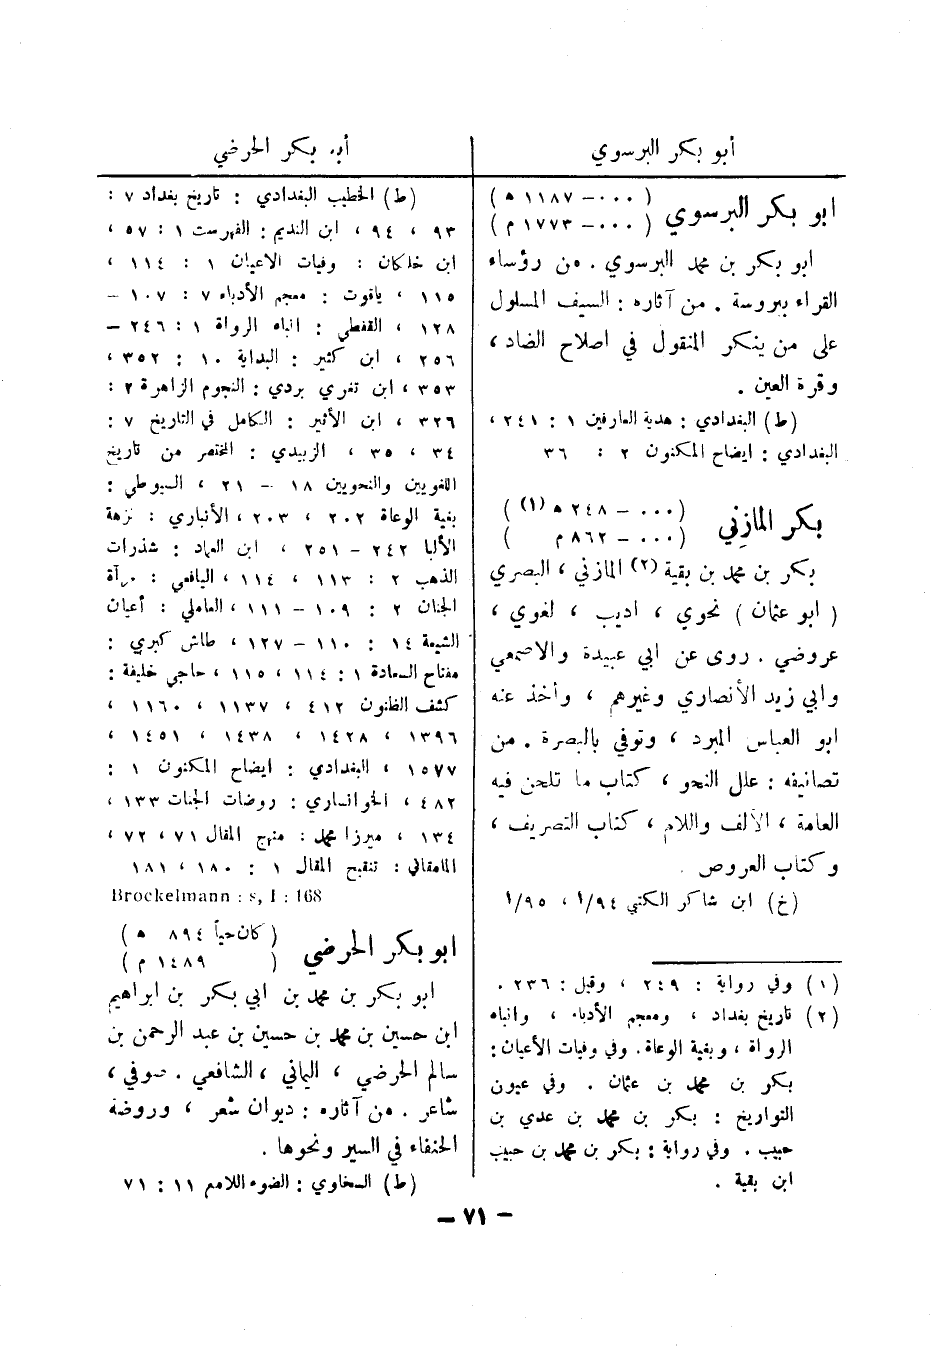 أبو بكر البرسوي
ابو بكر البرسوي ( ٠٠٠ – ١١٨٧ ه )
( ٠٠٠ – ١٧٧٣ م )
ابو بكر بن محمد البرسوي . من رؤساء
القراء ببروسة . من آثاره : السيف المسلول
على من ينكر المنقول في اصلاح الضاد ،
وقرة العين .
(ط) البغدادي : هدية العارفين ١ : ٢٤١ ،
البغدادي : ايضاح المكنون ٢ : ٣٦
بكر المازني ( ٠٠٠ – ٢٤٨ ه (١) )
( ٠٠٠ – ٨٦٢ م )
بكر بن محمد بن بقية (٢) المازني ، البصري
( ابو عثمان ) نحوي ، اديب ، لغوي ،
عروضي . روى عن ابي عبيدة والاصمعي
وابي زيد الأنصاري وغيرهم ، وأخذ عنه
ابو العباس المبرد ، وتوفي بالبصرة . من
تصانيفه : علل النحو ، كتاب ما تلحن فيه
العامة ، الألف واللام ، كتاب التصريف ،
وكتاب العروض .
(خ) ابن شاكر الكتبي ١/٩٤ ، ١/٩٥
(١) وفي رواية : ٢٤٩ ، وقيل : ٢٣٦ .
(٢) تاريخ بغداد ، ومعجم الأدباء ، وانباه
الرواة ، وبغية الوعاة . وفي وفيات الأعيان :
بكر بن محمد بن عثمان . وفي عيون
التواريخ : بكر بن محمد بن عدي بن
حبيب . وفي رواية : بكر بن محمد بن حبيب
ابن بقية .
أبو بكر الحرضي
(ط) الخطيب البغدادي : تاريخ بغداد ٧ :
٩٣ ، ٩٤ ، ابن النديم : الفهرست ١ : ٥٧ ،
ابن خلكان : وفيات الاعيان ١ : ١١٤ ،
١١٥ ، ياقوت : معجم الأدباء ٧ : ١٠٧ –
١٢٨ ، القفطي : انباه الرواة ١ : ٢٤٦ –
٢٥٦ ، ابن كثير : البداية ١٠ : ٣٥٢ ،
٣٥٣ ، ابن تغري بردي : النجوم الزاهرة ٢ :
٣٢٦ ، ابن الأثير : الكامل في التاريخ ٧ :
٣٤ ، ٣٥ ، الزبيدي : المختصر من تاريخ
اللغويين والنحويين ١٨ – ٢١ ، السيوطي :
بغية الوعاة ٢٠٢ ، ٢٠٣ ، الأنباري : نزهة
الألبا ٢٤٢ – ٢٥١ ، ابن العماد : شذرات
الذهب ٢ : ١١٣ ، ١١٤ ، اليافعي : مرآة
الجنان ٢ : ١٠٩ – ١١١ ، العاملي : أعيان
الشيعة ١٤ : ١١٠ – ١٢٧ ، طاش كبري :
مفتاح السعادة ١ : ١١٤ ، ١١٥ ، حاجي خليفة :
كشف الظنون ٤١٢ ، ١١٣٧ ، ١١٦٠ ،
١٣٩٦ ، ١٤٢٨ ، ١٤٣٨ ، ١٤٥١ ،
١٥٧٧ ، البغدادي : ايضاح المكنون ١ :
٤٨٢ ، الخوانساري : روضات الجنات ١٣٣ ،
١٣٤ ، ميرزا محمد : منهج المقال ٧١ ، ٧٢ ،
المامقاني : تنقيح المقال ١ : ١٨٠ ، ١٨١
Brockelmann : s, I : 168
ابو بكر الحرضي ( كان حياً ٨٩٤ ه )
( ١٤٨٩ م )
ابو بكر بن محمد بن ابي بكر بن ابراهيم
ابن حسين بن محمد بن حسين بن عبد الرحمن بن
سالم الحرضي ، اليماني ، الشافعي . صوفي ،
شاعر . من آثاره : ديوان شعر ، وروضة
الحنفاء في السير ونحوها .
(ط) السخاوي : الضوء اللامع ١١ : ٧١
– ٧١ –